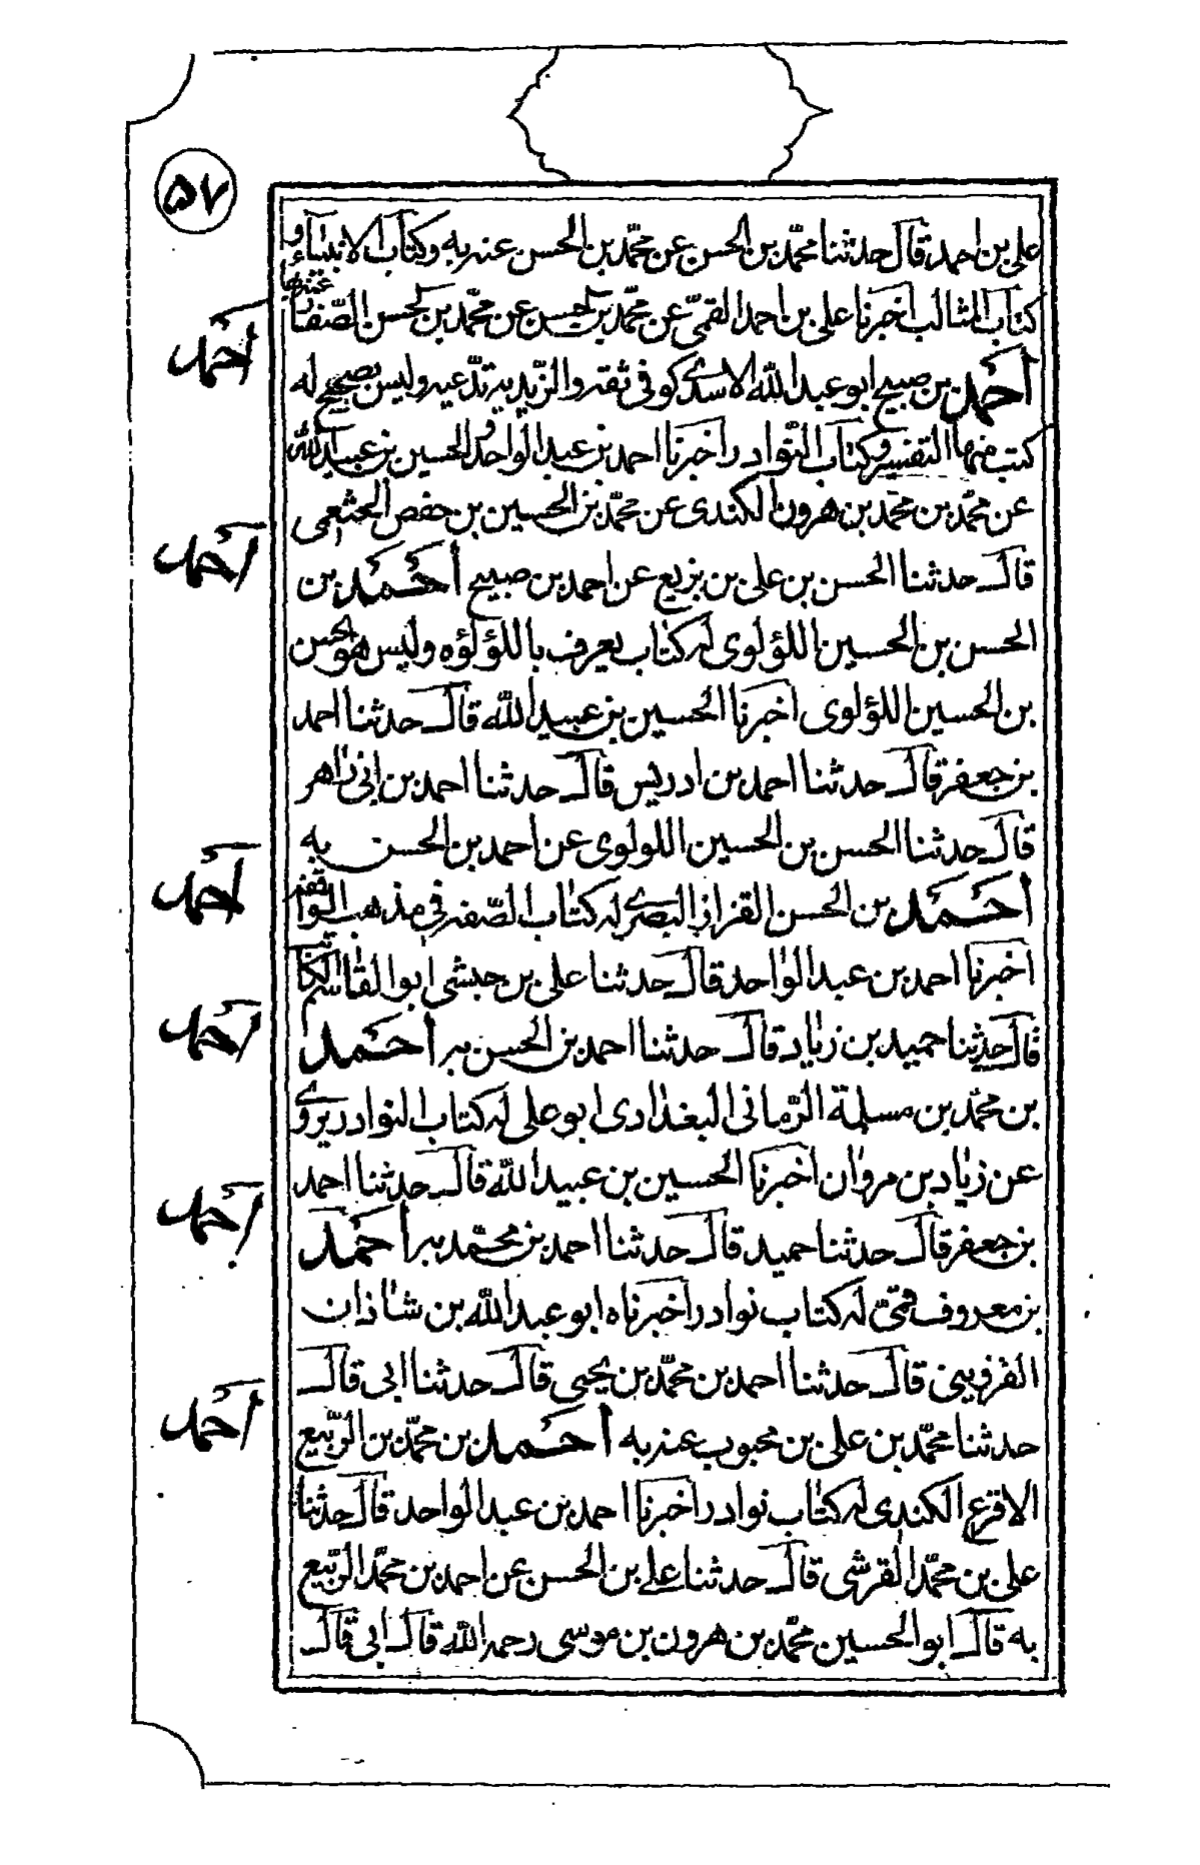 ۵۷
علی بن احمد قال حدثنا محمّد بن الحسن عن محمّد بن الحسن عنه به وکتاب الانبیاء و
کتاب المثالب اخبرنا علی بن احمد القمیّ عن محمّد بن الحسن عن محمّد بن الحسن الصّفار عنه بها
أحمد بن صبیح ابو عبد اللّه الاسدی کوفی ثقه و الزیدیه تدّعیه ولیس بصحیح له
کتب منها التفسیر وکتاب النّوادر اخبرنا احمد بن عبد الواحد و الحسین بن عبید اللّه
عن محمّد بن محمد بن هرون الکندی عن محمّد بن الحسین بن حفص الخثعمی
قال حدثنا الحسن بن علی بن بزیع عن احمد بن صبیح أحمد بن
الحسن بن الحسین اللؤلوی له کتاب یعرف باللؤلؤه ولیس هو الحسن
بن الحسین اللؤلوی اخبرنا الحسین بن عبید اللّه قال حدثنا احمد
بن جعفر قال حدثنا احمد بن ادریس قال حدثنا احمد بن ابی زاهر
قال حدثنا الحسن بن الحسین اللولوی عن احمد بن الحسن به
أحمد بن الحسن القزاز البصری له کتاب الصّفه فی مذهب الواقفه
اخبرنا احمد بن عبد الواحد قال حدثنا علی بن حبشی ابو القاسم الکاتب
قال حدثنا حمید بن زیاد قال حدثنا احمد بن الحسن به أحمد
بن محمّد بن مسلمة الرّمانی البغدادی ابو علی له کتاب النوادر یروی
عن زیاد بن مروان اخبرنا الحسین بن عبید اللّه قال حدثنا احمد
بن جعفر قال حدثنا حمید قال حدثنا احمد بن محمّد به أحمد
بن معروف قمّیّ له کتاب نوادر اخبرناه ابو عبد اللّه بن شاذان
القزوینی قال حدثنا احمد بن محمّد بن یحیی قال حدثنا ابی قال
حدثنا محمّد بن علی بن محبوب عنه به أحمد بن محمّد بن الرّبیع
الاقرع الکندی له کتاب نوادر اخبرنا احمد بن عبد الواحد قال حدثنا
علی بن محمّد القرشی قال حدثنا علی بن الحسن عن احمد بن محمّد الرّبیع
به قال ابو الحسین محمّد بن هرون بن موسی رحمه اللّه قال ابی قال
أحمد
أحمد
أحمد
أحمد
أحمد
أحمد